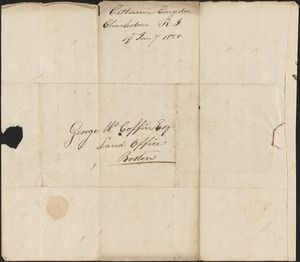 Catharine Congdon
Charlestown R I
Jany 1835
George W Coffin Esq
Land Office
Boston